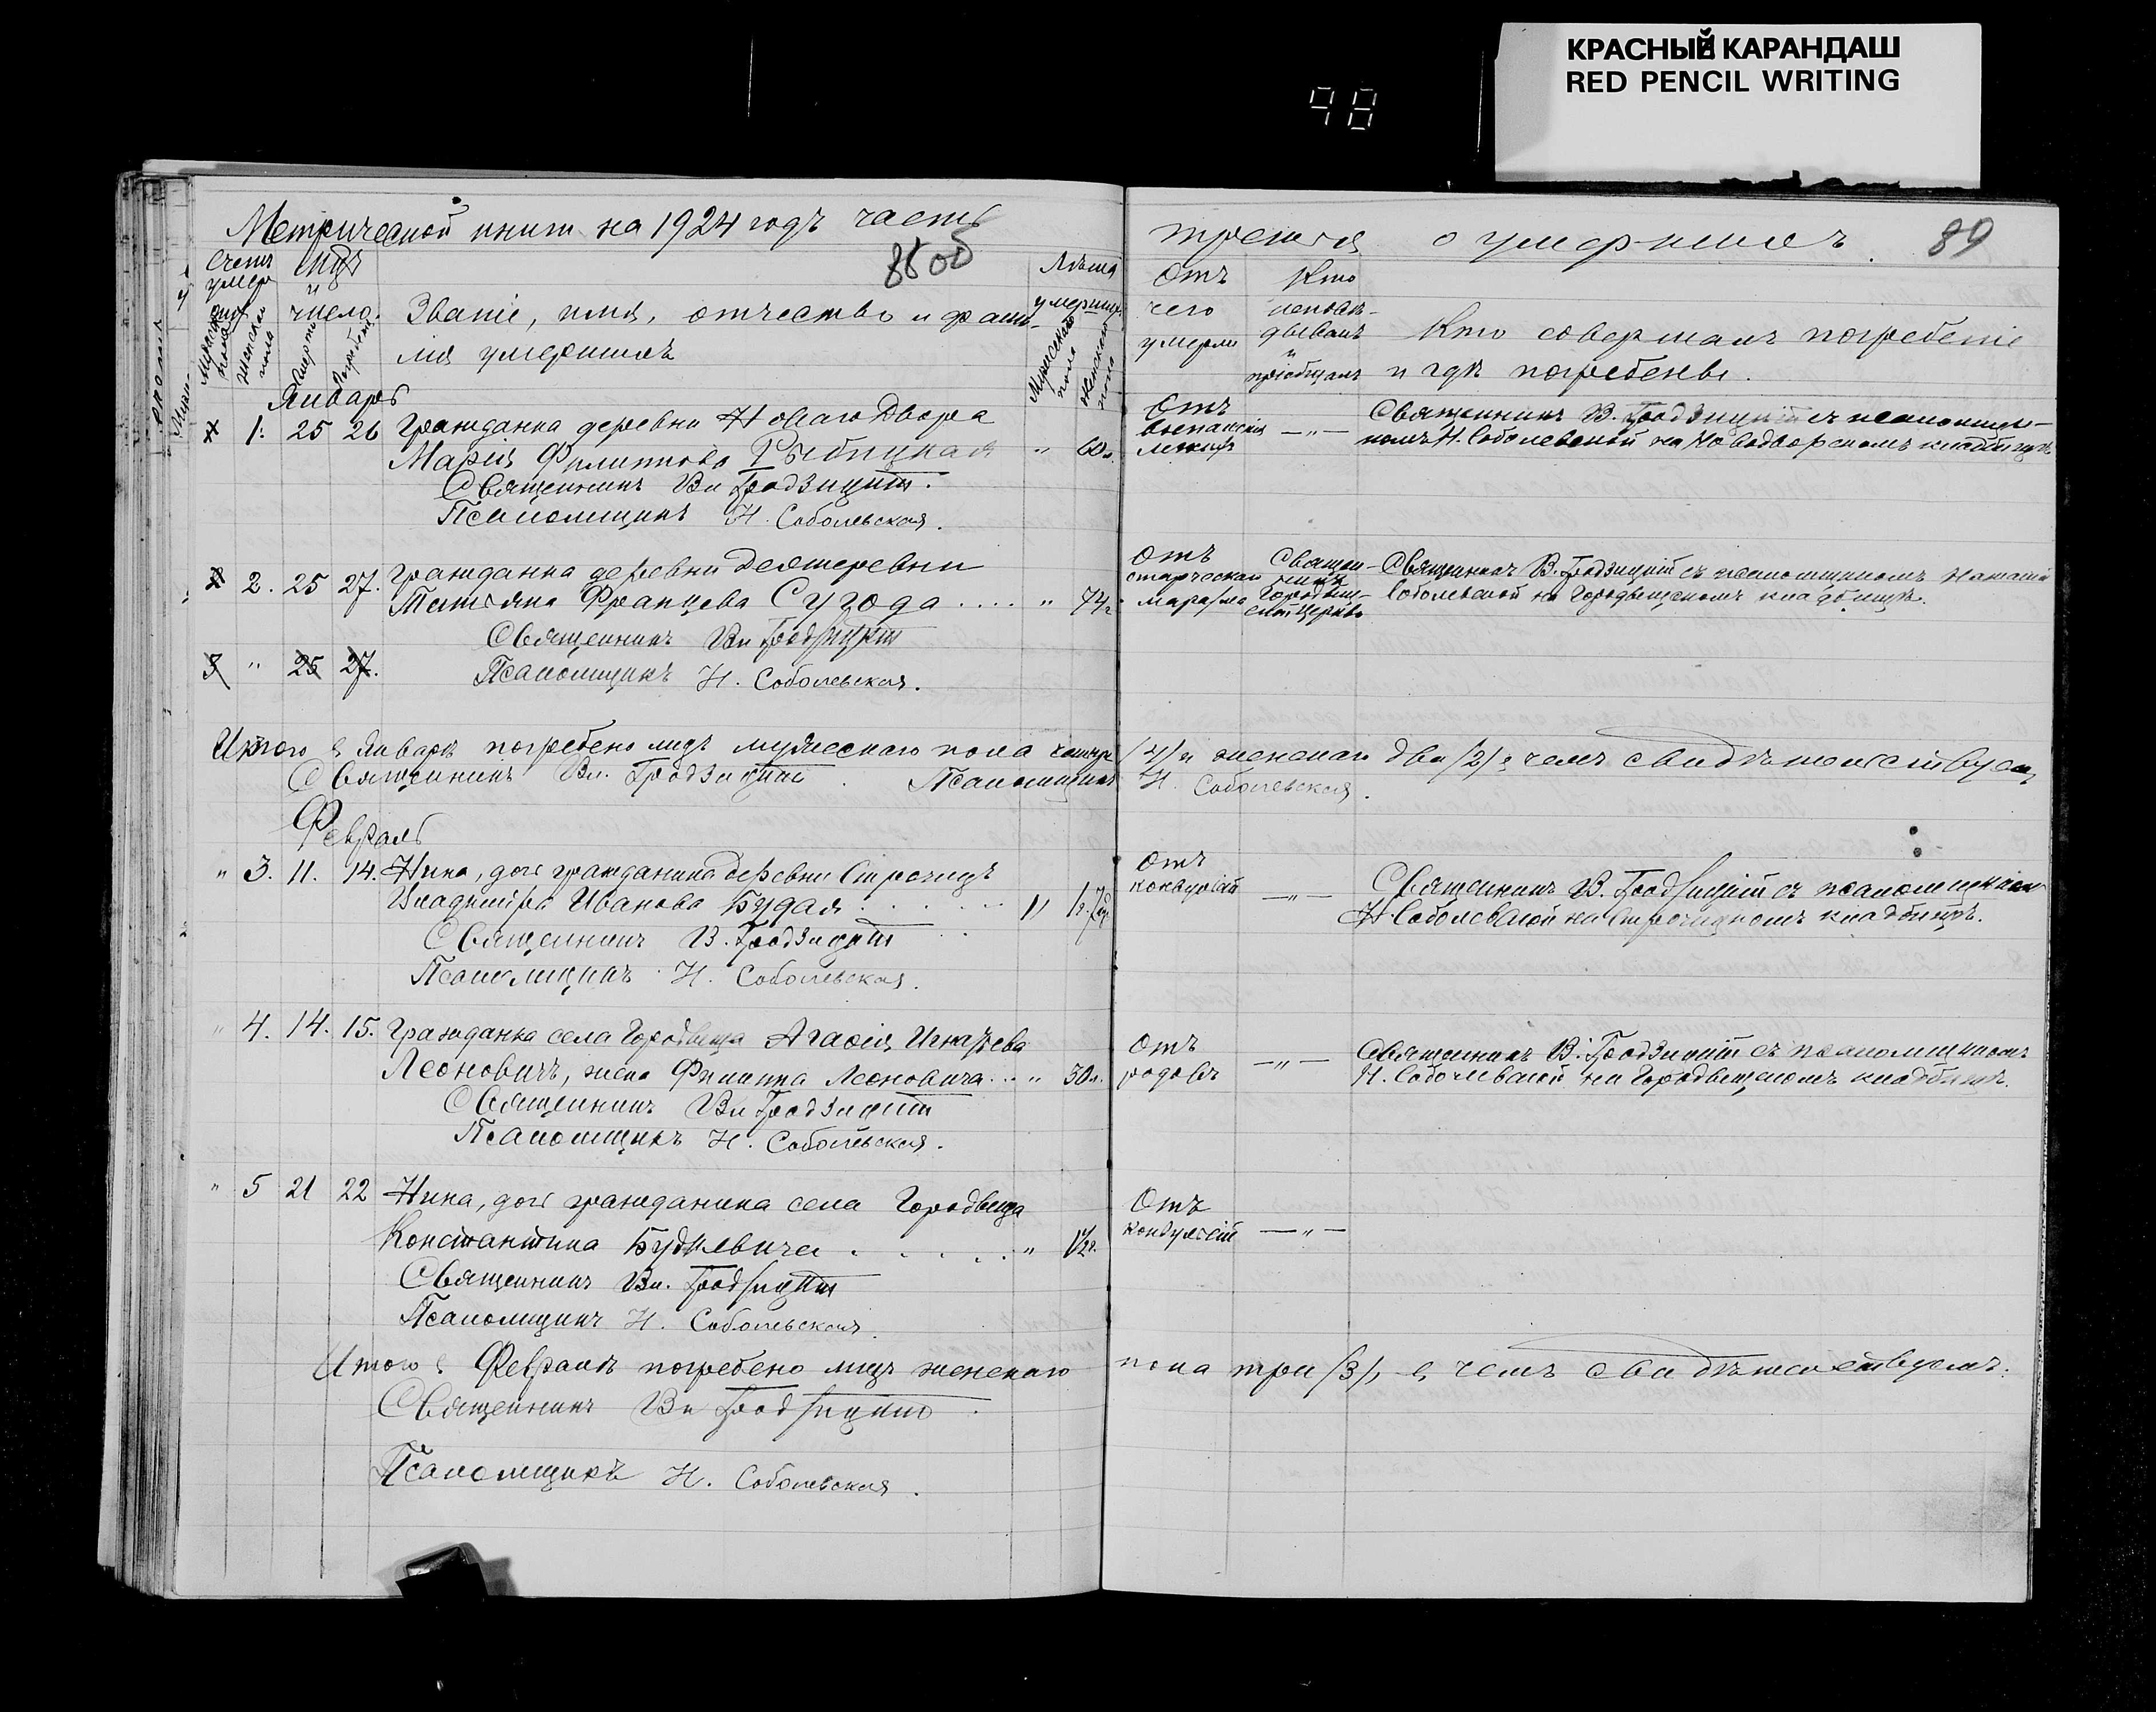 КРАСНЫЙ КАРАНДАШ
RED PENCIL WRITING
98
Метрической книги на 1924 годъ часть
третья о умершихъ.
89
88 об
Счетъ умер-шихъ
Мужеска пола
Женска пола
Мцъ и число.
Смерти
Погребен.
Званіе, имя, отчество и фами-
лія умершихъ
Лѣта умершихъ
Мужеского пола
женского пола
Отъ
чего
умерли
Кто
исповѣ-
дывалъ
и
пріобщалъ
Кто совершалъ погребеніе
и гдѣ погребены.
Январь
1. 25 26 Гражданка деревни Новаго Двора
Марія Филиппова Рыбицкая " 60 л.
Священникъ Вл Гродзицкій.
Псаломщикъ Н. Соболевская.
Отъ
воспаленія
легкихъ
—"—
Священникъ В. Гродзицкій съ псаломщи-
комъ Н. Соболевской на Новодворскомъ кладбищѣ
2. 25 27. Гражданка деревни
Татьяна Францева Сугода .... " 74 г.
Священникъ Вл Гродзицкій
3 " 25 27. Псаломщикъ Н. Соболевская.
Отъ
старческаго
маразма
Священ-
никъ
Городищ-
ской Церкви
Священникъ В. Гродзицкій съ псаломщикомъ Наталіей
Соболевской на Городищскомъ кладбищѣ.
Итого в Январѣ погребено лицъ мужескаго пола четыре /4/ и женскаго два /2/, в чемъ свидѣтельствуемъ
Священникъ Вл. Гродзицкій. Псаломщикъ Н. Соболевская.
Февраль
" 3. 11. 14. Нина, дочь гражданина деревни Строчицъ
Владиміра Ивановa Будая . . . . . "
Священникъ В. Гродзицкій
Псаломщикъ Н. Соболевская.
Отъ
конвульсій
—"—
Священникъ В. Гродзицкій съ псаломщикомъ
Н. Соболевской на Строчицкомъ кладбищѣ.
" 4. 14. 15. Гражданка села Городища Агафія Игнатьева
Леоновичъ, жена Филиппа Леоновича... " 50 л.
Священникъ Вл Гродзицкій
Псаломщикъ Н. Соболевская.
Отъ
родовъ
—"—
Священникъ В. Гродзицкій съ псаломщикомъ
Н. Соболевской на Городищскомъ кладбищѣ.
" 5 21 22 Нина, дочь гражданина села Городища
Константина Будкевича . . . . "
Священникъ Вл. Гродзицкій
Псаломщикъ Н. Соболевская.
Отъ
конвульсій
—"—
Итого в Февралѣ погребено лицъ женскаго пола три /3/, в чемъ свидѣтельствуемъ:
Священникъ Вл Гродзицкій.
Псаломщикъ Н. Соболевская.